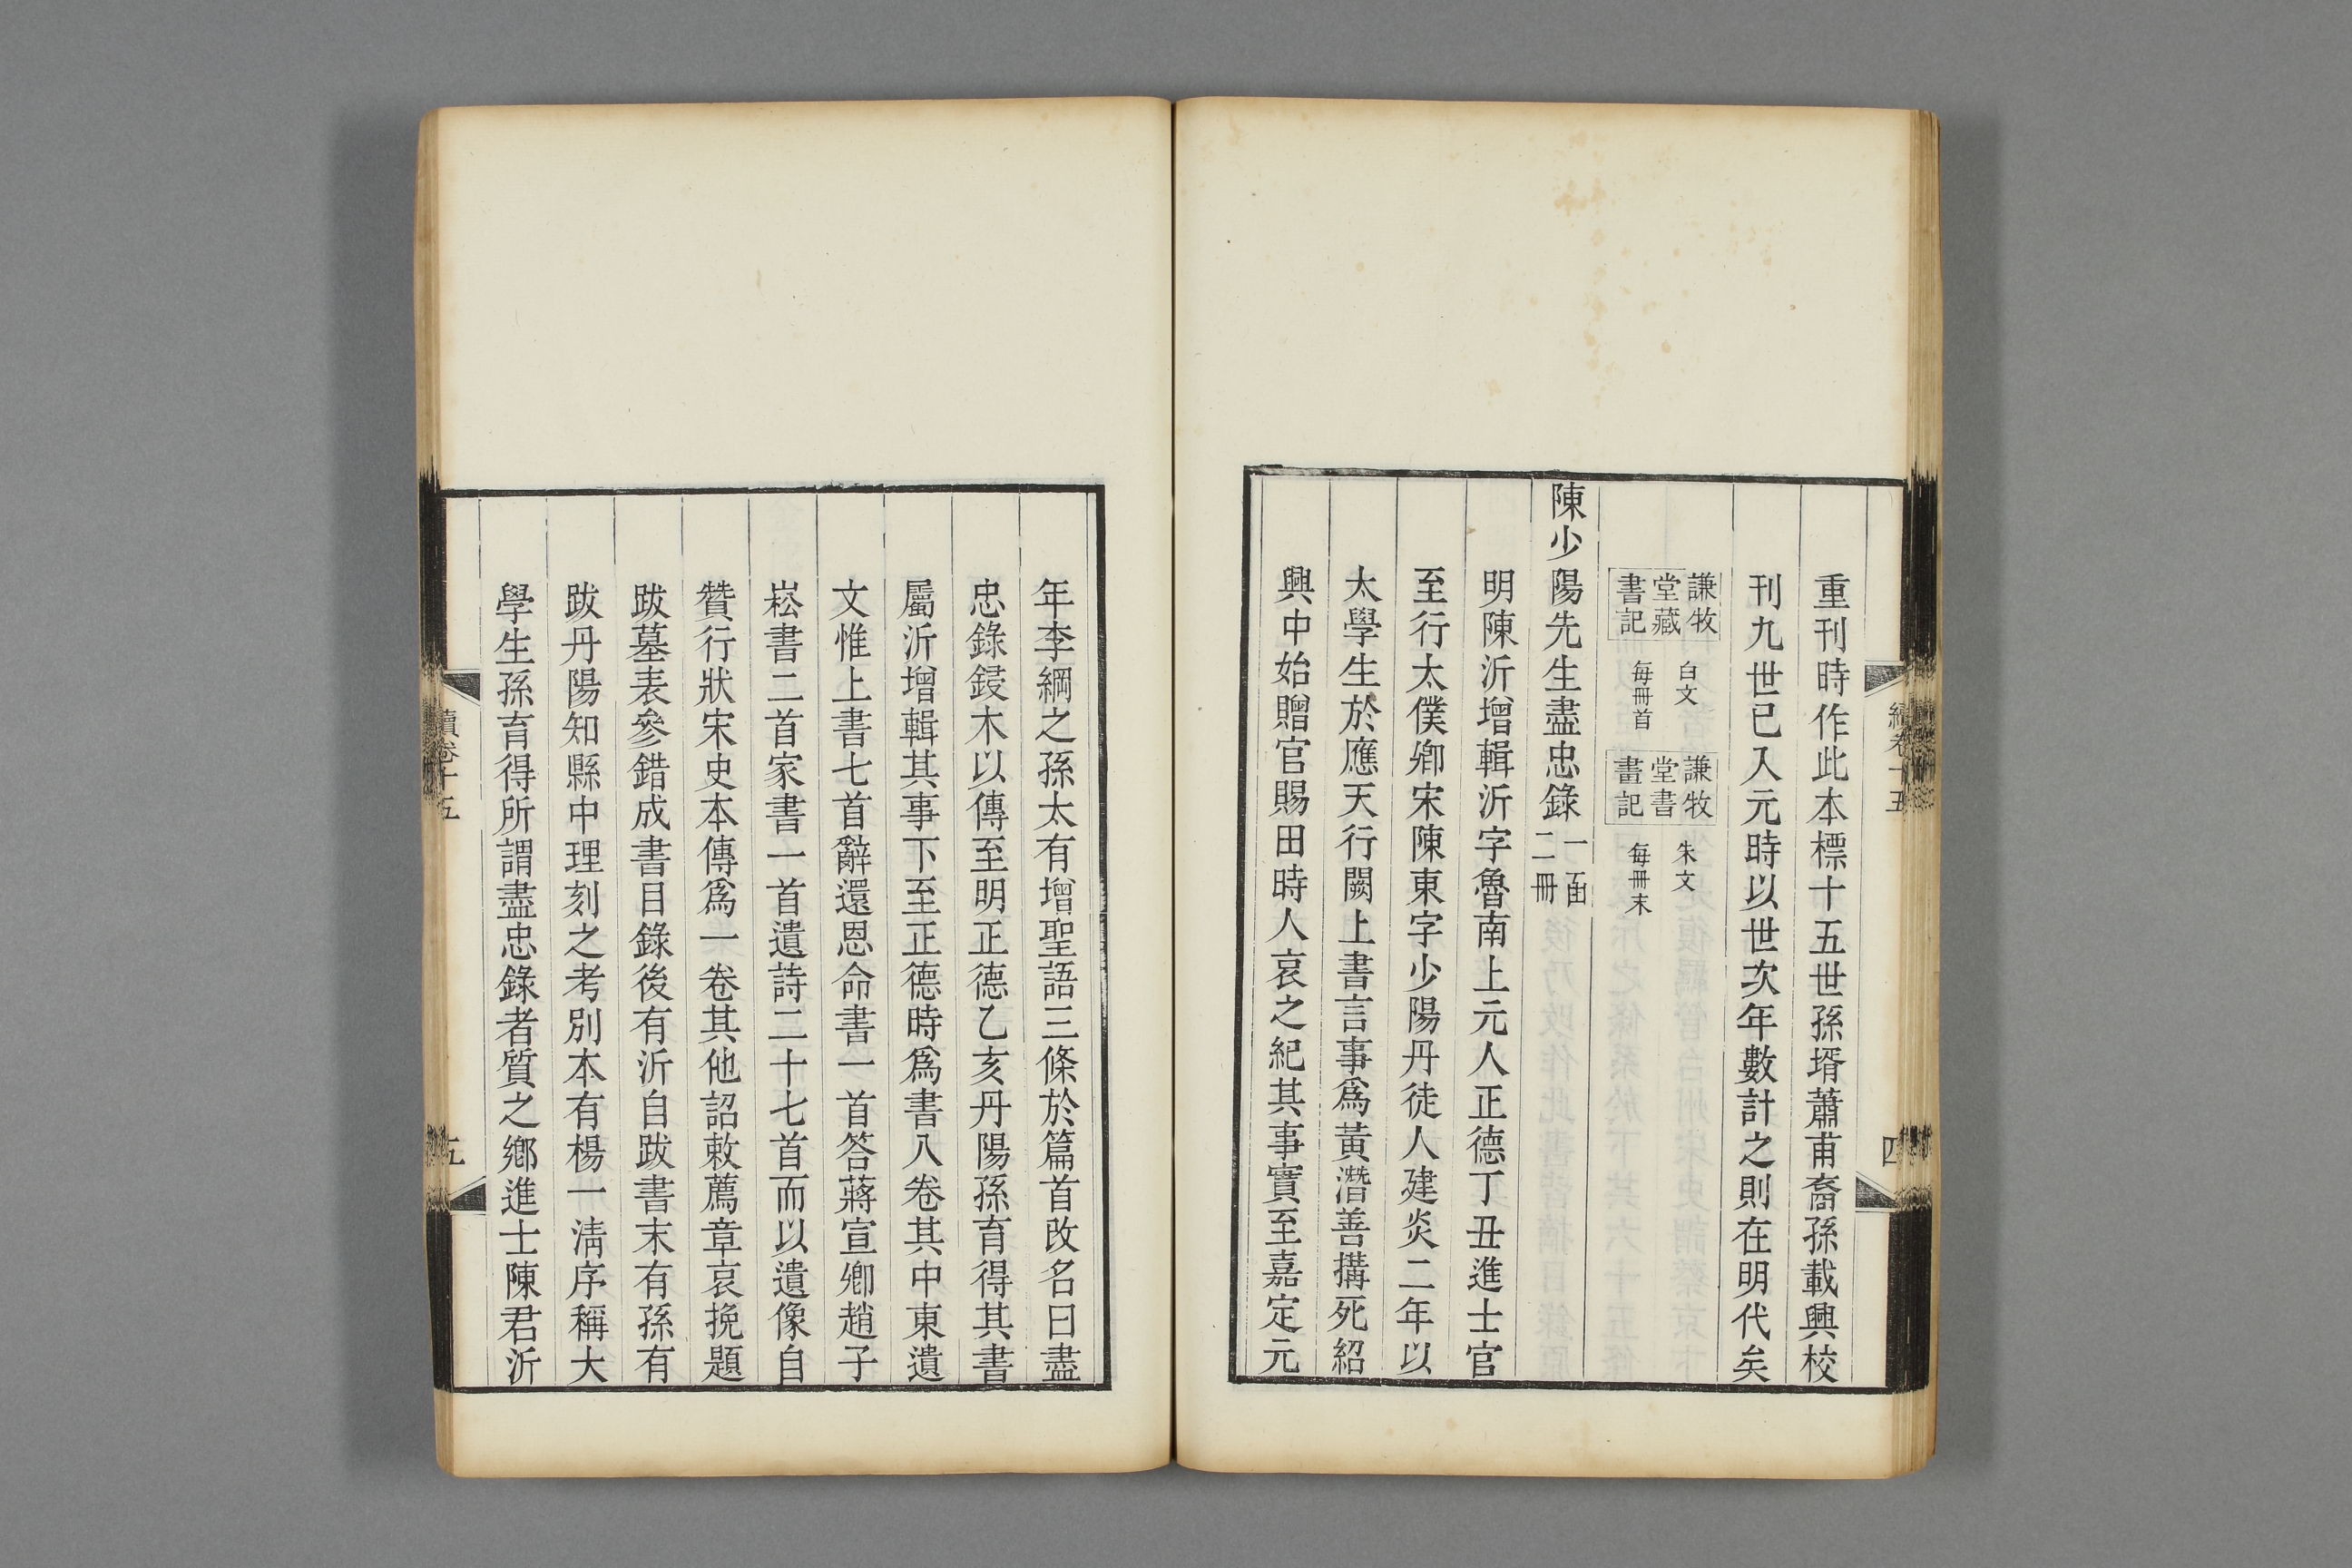 重刊時作此本標十五世孫壻蕭甫裔孫載興校
刊九世已入元時以世次年數計之則在明代矣
謙牧
堂藏
書記
白文
每冊首
謙牧
堂書
畫記
朱文
每冊末
陳少陽先生盡忠錄
一函
二冊
明陳沂增輯沂字魯南上元人正德丁丑進士官
至行太僕卿宋陳東字少陽丹徒人建炎二年以
太學生於應天行闕上書言事爲黃潛善搆死紹
興中始贈官賜田時人哀之紀其事實至嘉定元
續卷十五
四
年李綱之孫太有增聖語三條於篇首改名曰盡
忠錄鋟木以傳至明正德乙亥丹陽孫育得其書
屬沂增輯其事下至正德時爲書八卷其中東遺
文惟上書七首辭還恩命書一首答蔣宣卿趙子
崧書二首家書一首遺詩二十七首而以遺像自
贊行狀宋史本傳爲一卷其他詔敕薦章哀挽題
跋墓表參錯成書目錄後有沂自跋書末有孫有
跋丹陽知縣中理刻之考別本有楊一清序稱大
學生孫育得所謂盡忠錄者質之鄉進士陳君沂
續卷十五
五